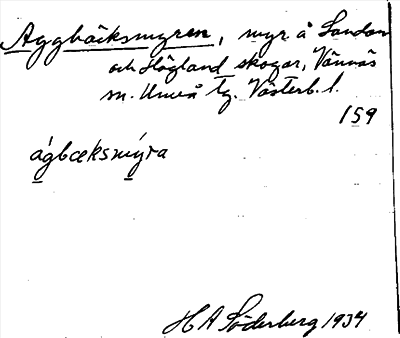 Aggbäcksmyren, myr å Sandar
och Högland skogar, Vännäs
sn. Umeå tg. Västerb. l.
159
ágbœksmýra
H A Söderberg 1934